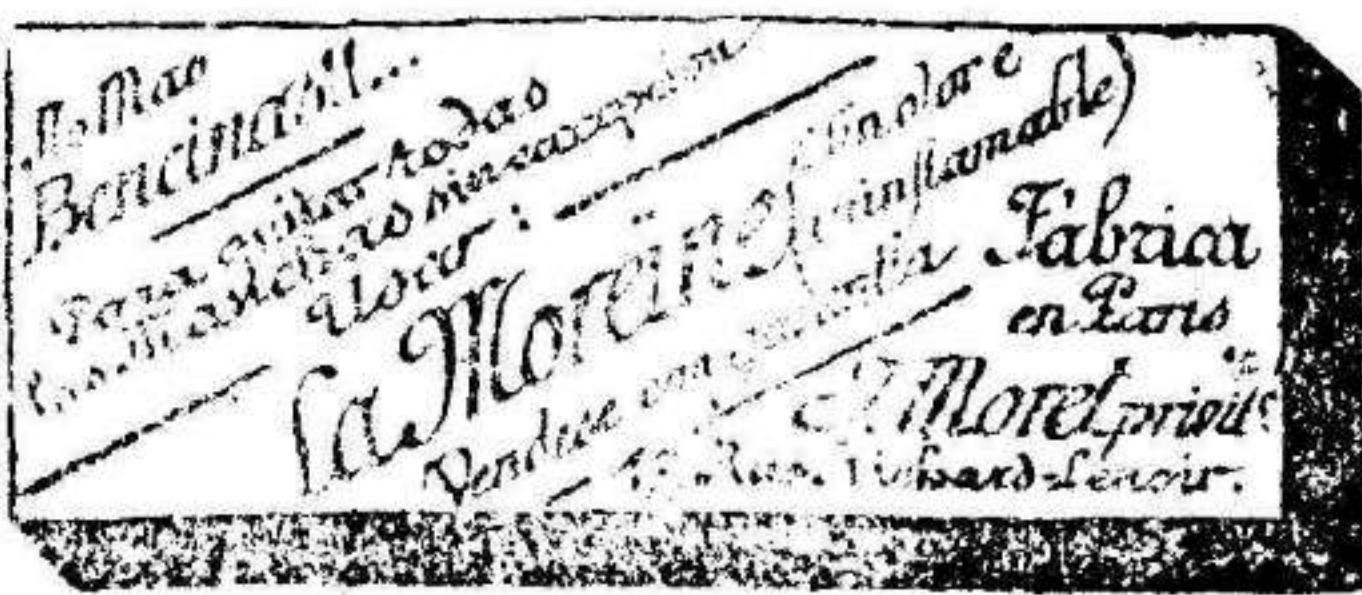 No Mas
Bencinas!!...
Para quitar todas
las manchas sin excepcion
Usar:
La Moreine (sin olor e
ininflamable)
Vendese con garantia
Fabrica
en Paris
J. Morel, privil
Rue Richard-Lenoir.